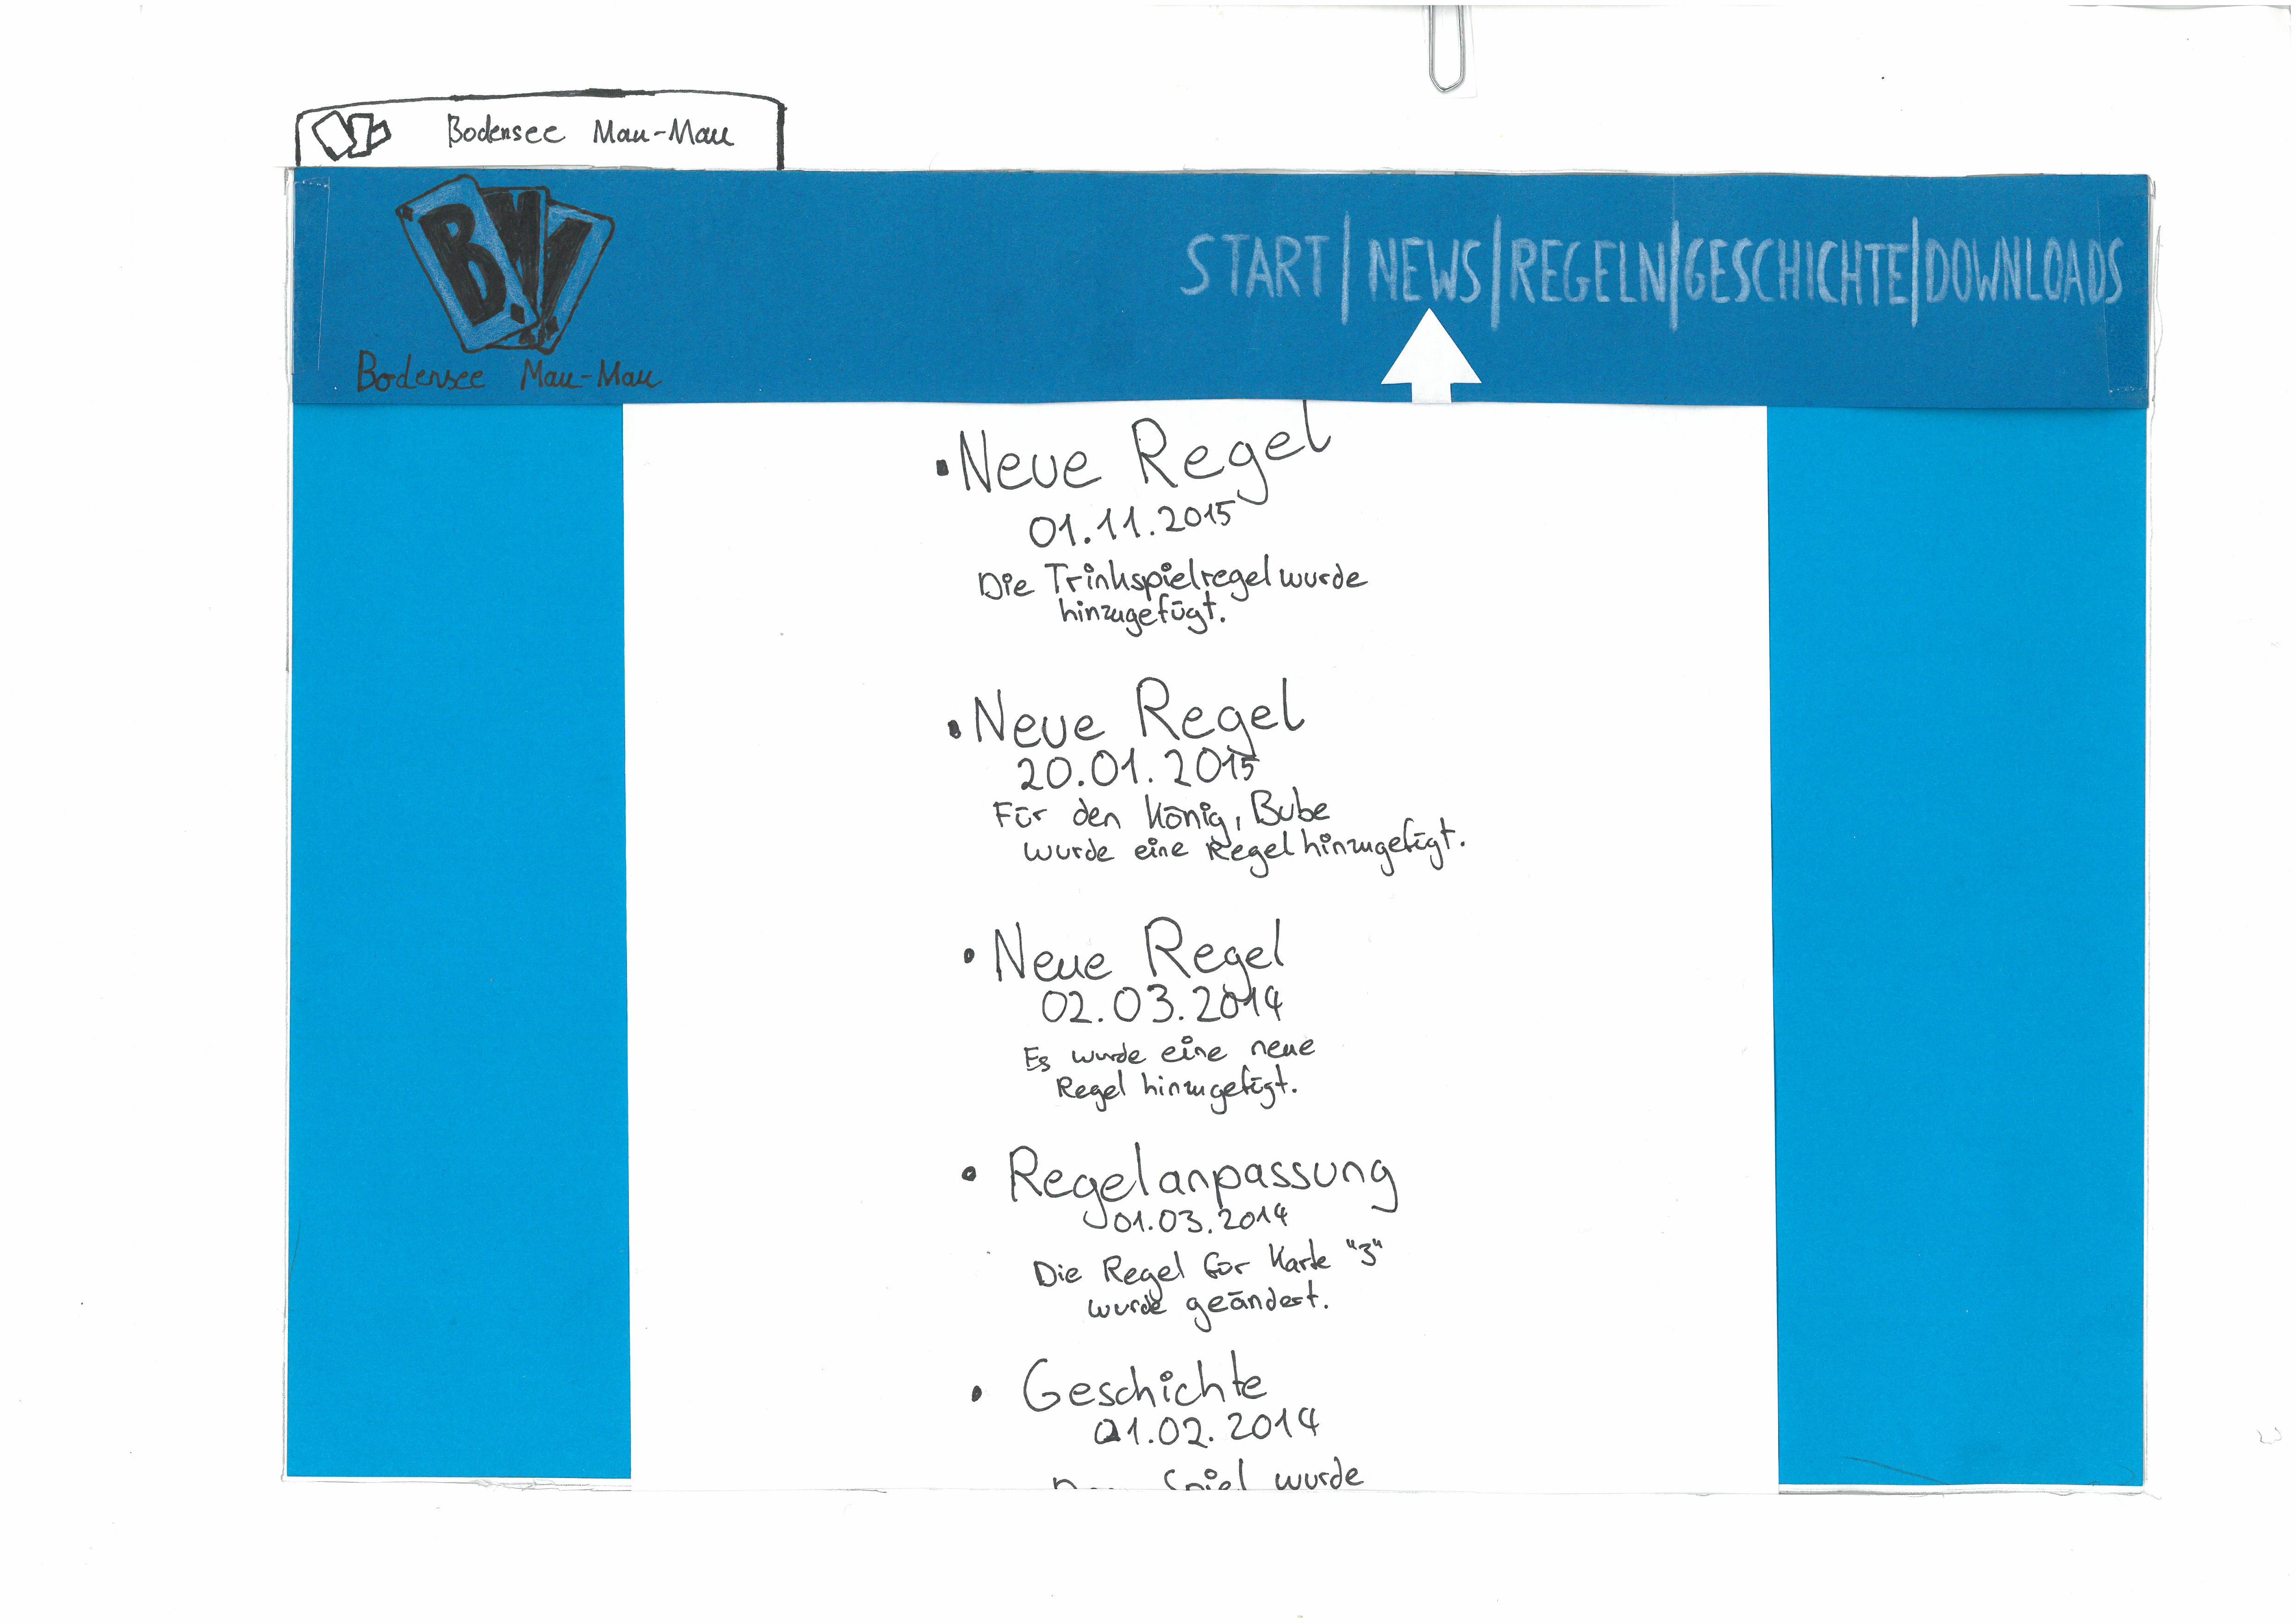 Bodensee Mau-Mau
B.M
Bodensee Mau-Mau
START | NEWS | REGELN | GESCHICHTE | DOWNLOADS
• Neue Regel
01.11.2015
Die Trinkspielregel wurde
hinzugefügt.
• Neue Regel
20.01.2015
Für den König, Bube
wurde eine Regel hinzugefügt.
• Neue Regel
02.03.2014
Es wurde eine neue
Regel hinzugefügt.
• Regelanpassung
01.03.2014
Die Regel für Karte "3"
wurde geändert.
• Geschichte
01.02.2014
Spiel wurde